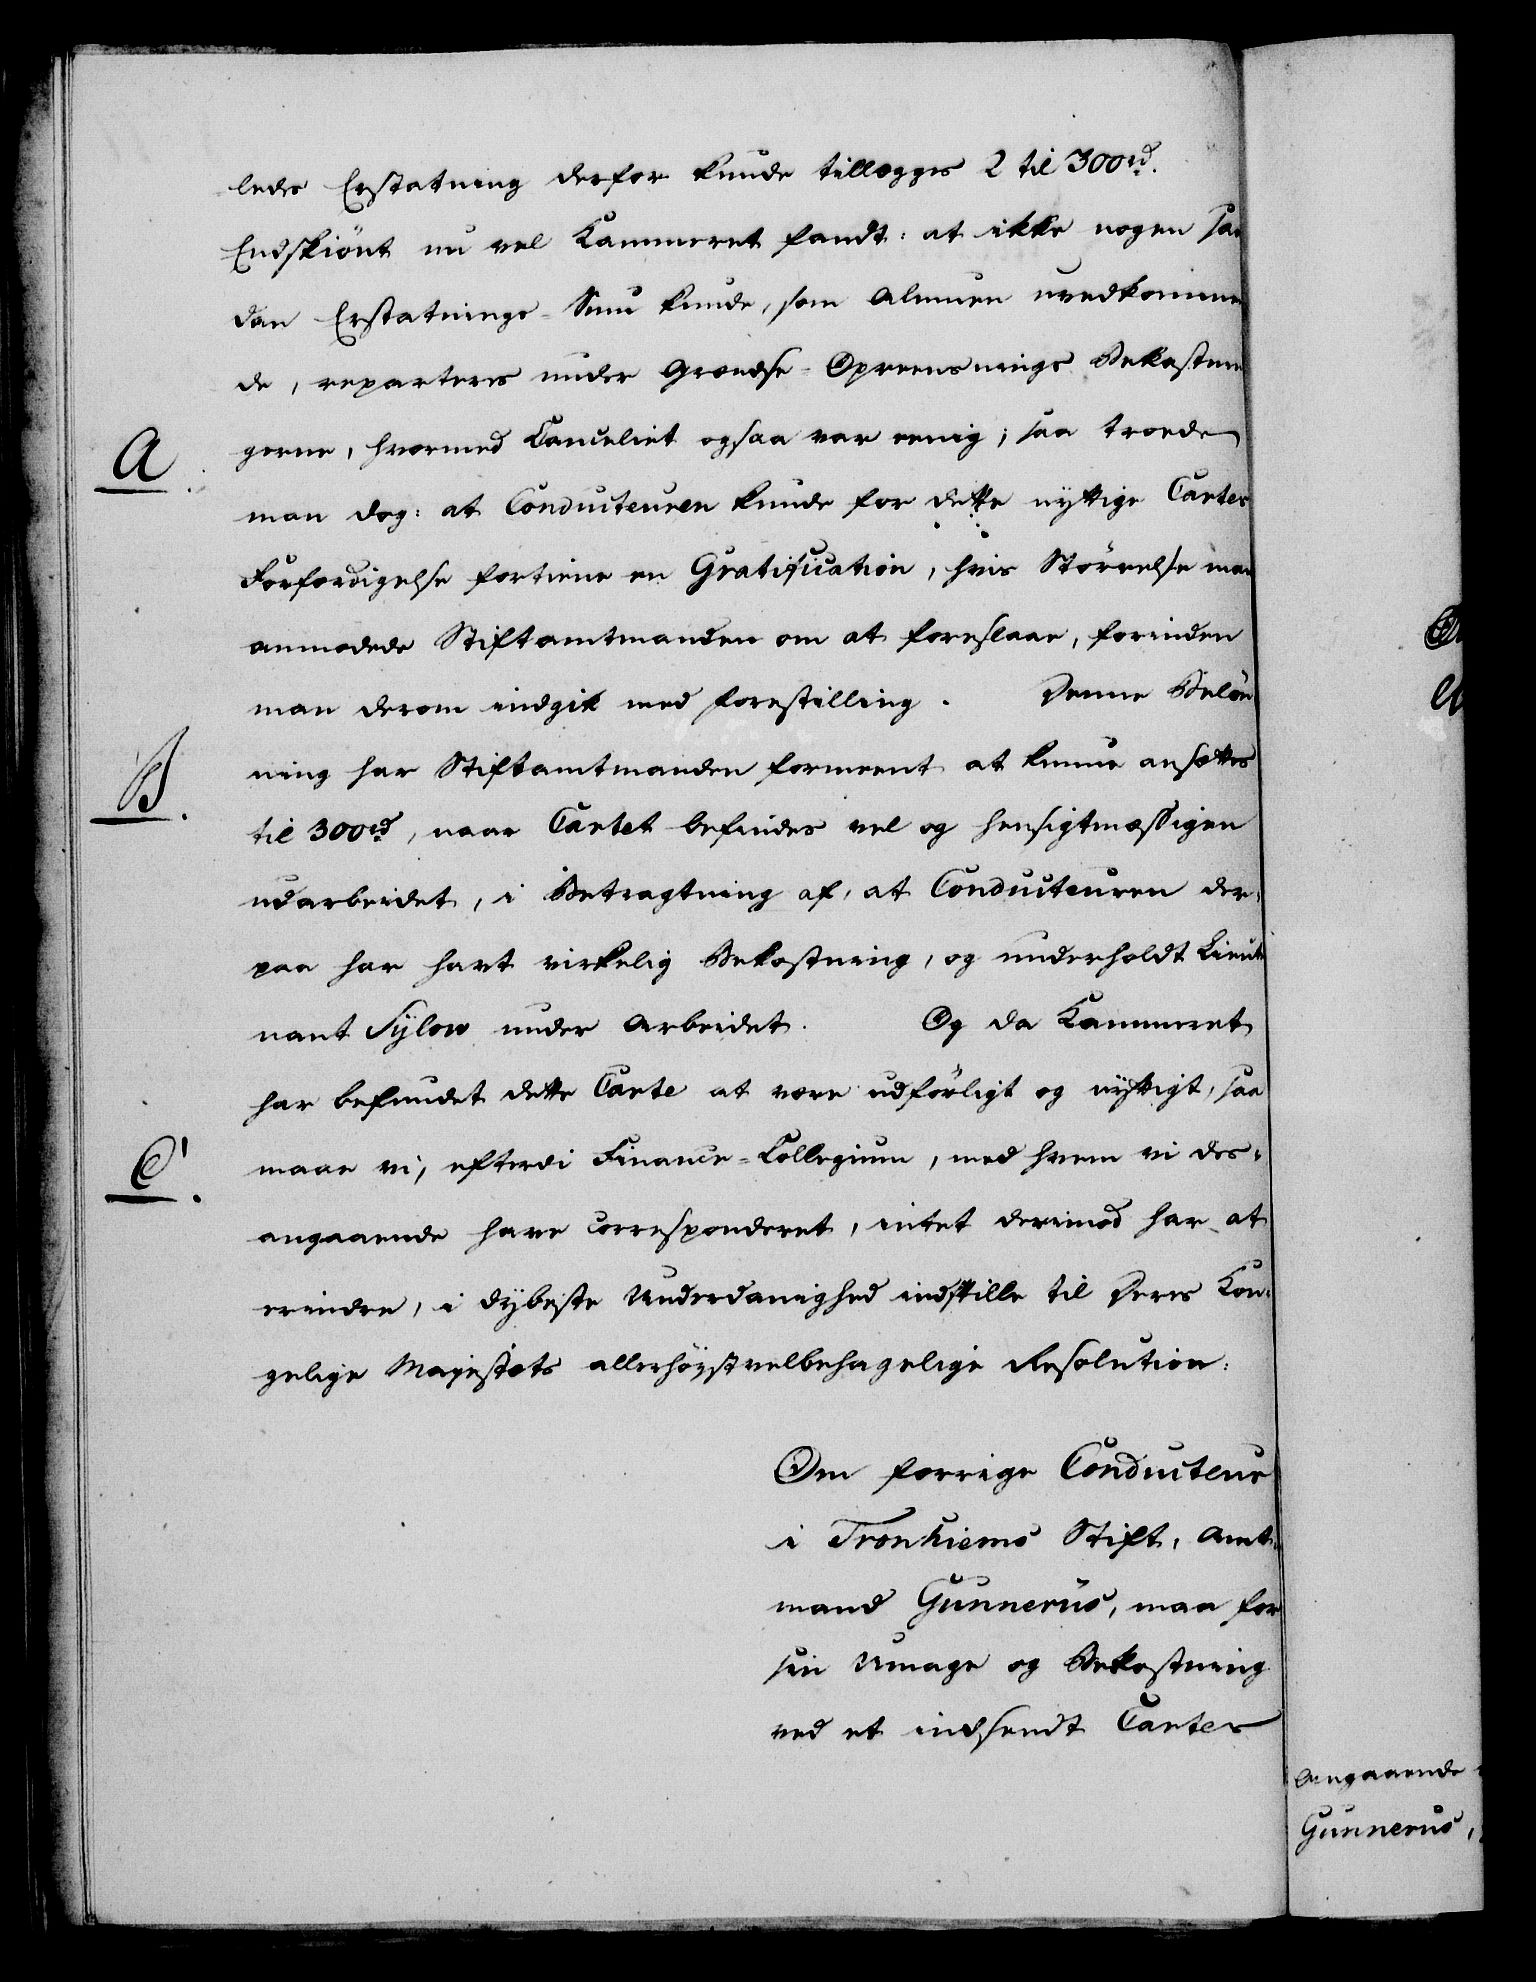 ledes Erstatning derfor kunde tillægges 2 til 300 rd.
Endskiönt nu vel Kammeret fandt: at ikke nogen saa
dan Erstatnings-Sum kunde, som Almuen uvedkommen
de, reparteres under Grændse-Opreensnings Bekostnin
A.
gerne, hvormed Canceliet ogsaa var eenig; saa troede
man dog: at Conducteuren kunde for dette nyttige Cartes
Forfærdigelse fortiene en Gratification, hvis Störrelse man
anmodede Stiftamtmanden om at foreslaae, forinden
man derom indgik med forestilling. Denne Belön
B.
ning har Stiftamtmanden formeent at kunne ansættes
til 300 rd, naar Cartet befindes vel og hensigtmæssigen
udarbeidet, i Betragtning af, at Conducteuren der-
paa har havt virkelig Bekostning, og underholdt Lieute
nant Sylow under Arbeidet. Og da Kammeret
har befundet dette Carte at være udförligt og nyttigt, saa
C.
maae vi, efterdi Finance-Collegium, med hvem vi des-
angaaende have corresponderet, intet derimod har at
erindre, i dybeste Underdanighed indstille til Deres Kon-
gelige Majestæts allerhöystvelbehagelige Resolution:
Om forrige Conducteur
i Tronhiems Stift, Amt-
mand Gunnerus, maa for
sin Umage og Bekostning
ved et indsendt Cartes
Angaaende
Gunnerus,